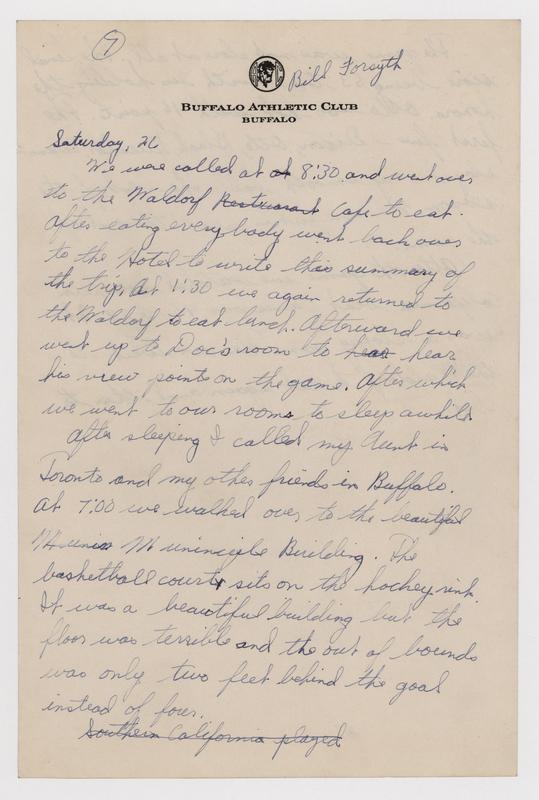 7
Bill Forsyth
BUFFALO ATHLETIC CLUB
BUFFALO
Saturday, 26
We were called at at 8:30 and went over
to the Waldorf Resturarant Cafe to eat.
After eating everybody went back over
to the Hotel to write this summary of
the trip. At 1:30 we again returned to
the Waldorf to eat lunch. Afterward we
went up to Doc's room to hear hear
his view points on the game. After which
we went to our rooms to sleep awhile.
After sleeping I called my Aunt in
Toronto and my other friends in Buffalo.
At 7:00 we walked over to the beautiful
Munin Muninciple Building. The
basketball court sits on the hockey rink.
It was a beautiful building but the
floor was terrible and the out of bounds
was only two feet behind the goal
instead of four.
Southern California played